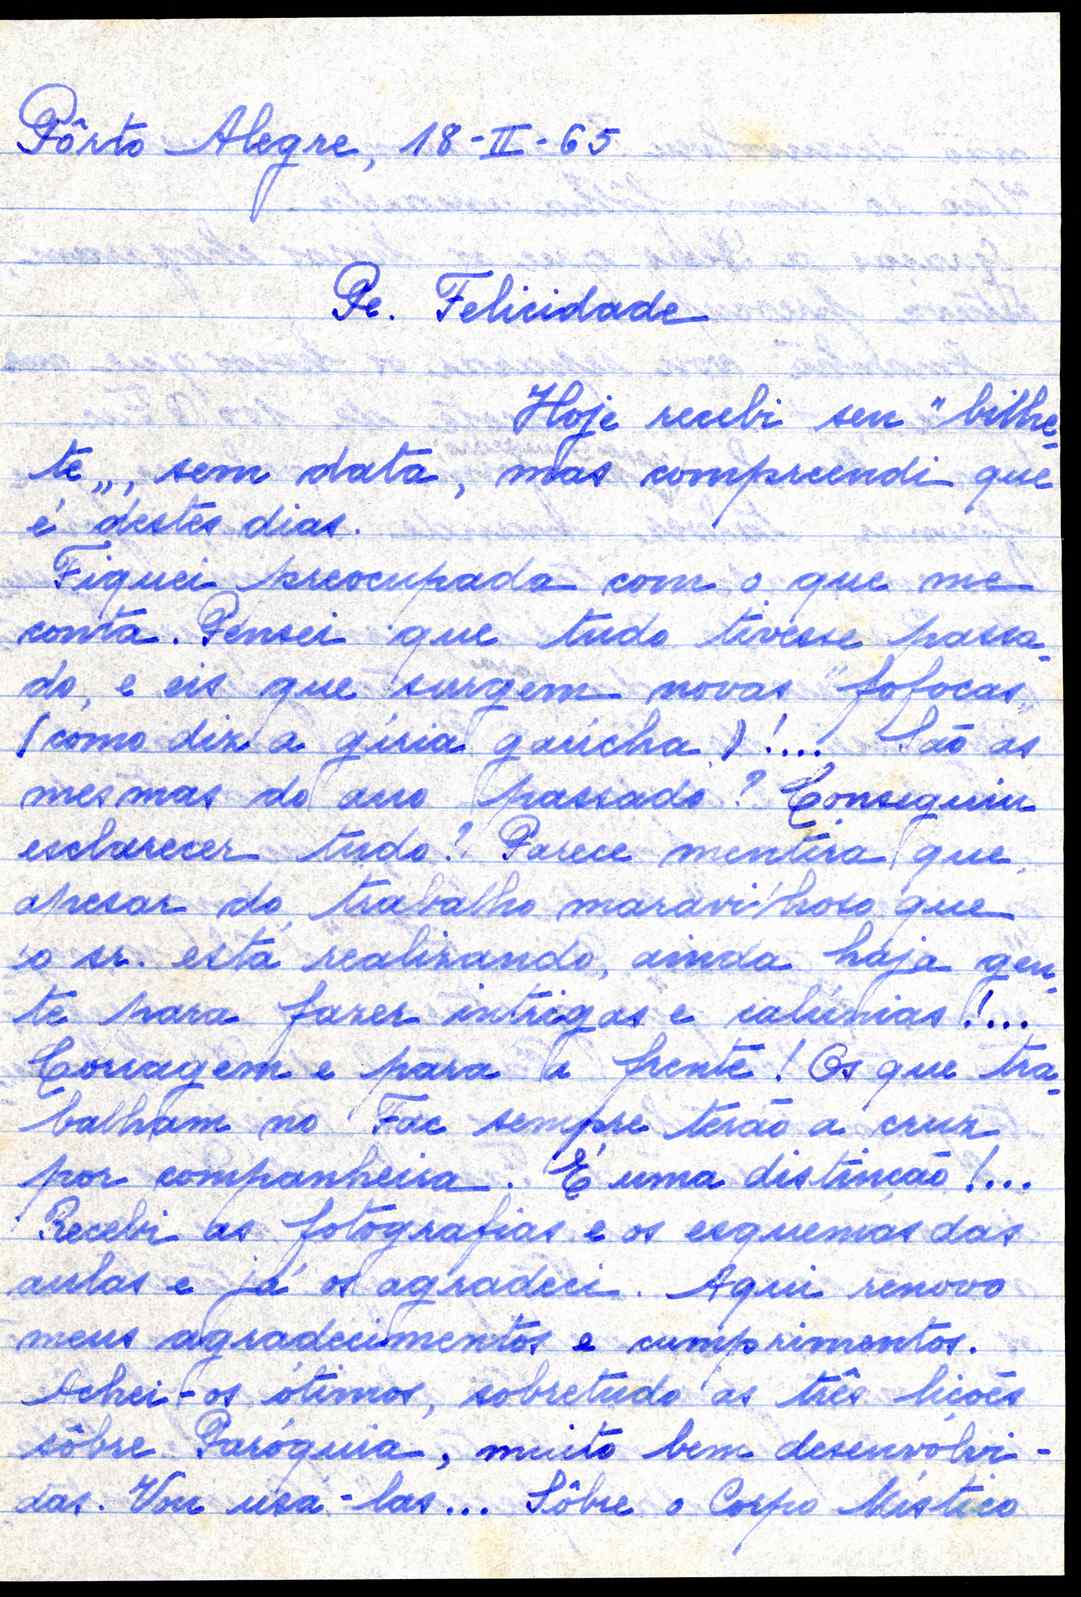 Pôrto Alegre, 18-II-65
Pe. Felicidade
Hoje recebi seu "bilhe-
te", sem data, mas compreendi que
é destes dias.
Fiquei preocupada com o que me
conta. Pensei que tudo tivesse passa-
do, e eis que surgem novas "fofocas"
(como diz a gíria gaúcha)!... São as
mesmas do ano passado? Conseguiu
esclarecer tudo? Parece mentira que,
apesar do trabalho maravilhoso que
o sr. está realizando, ainda haja gen-
te para fazer intrigas e calúnias!...
Coragem e para a frente! Os que tra-
balham no Fac sempre terão a cruz
por companheira. É uma distinção!...
Recebi as fotografias e os esquemas das
aulas e já os agradeci. Aqui renovo
meus agradecimentos e cumprimentos.
Achei-os ótimos, sobretudo as três lições
sôbre Paróquia, muito bem desenvolvi-
das. Vou usá-las... Sôbre o Corpo Místico